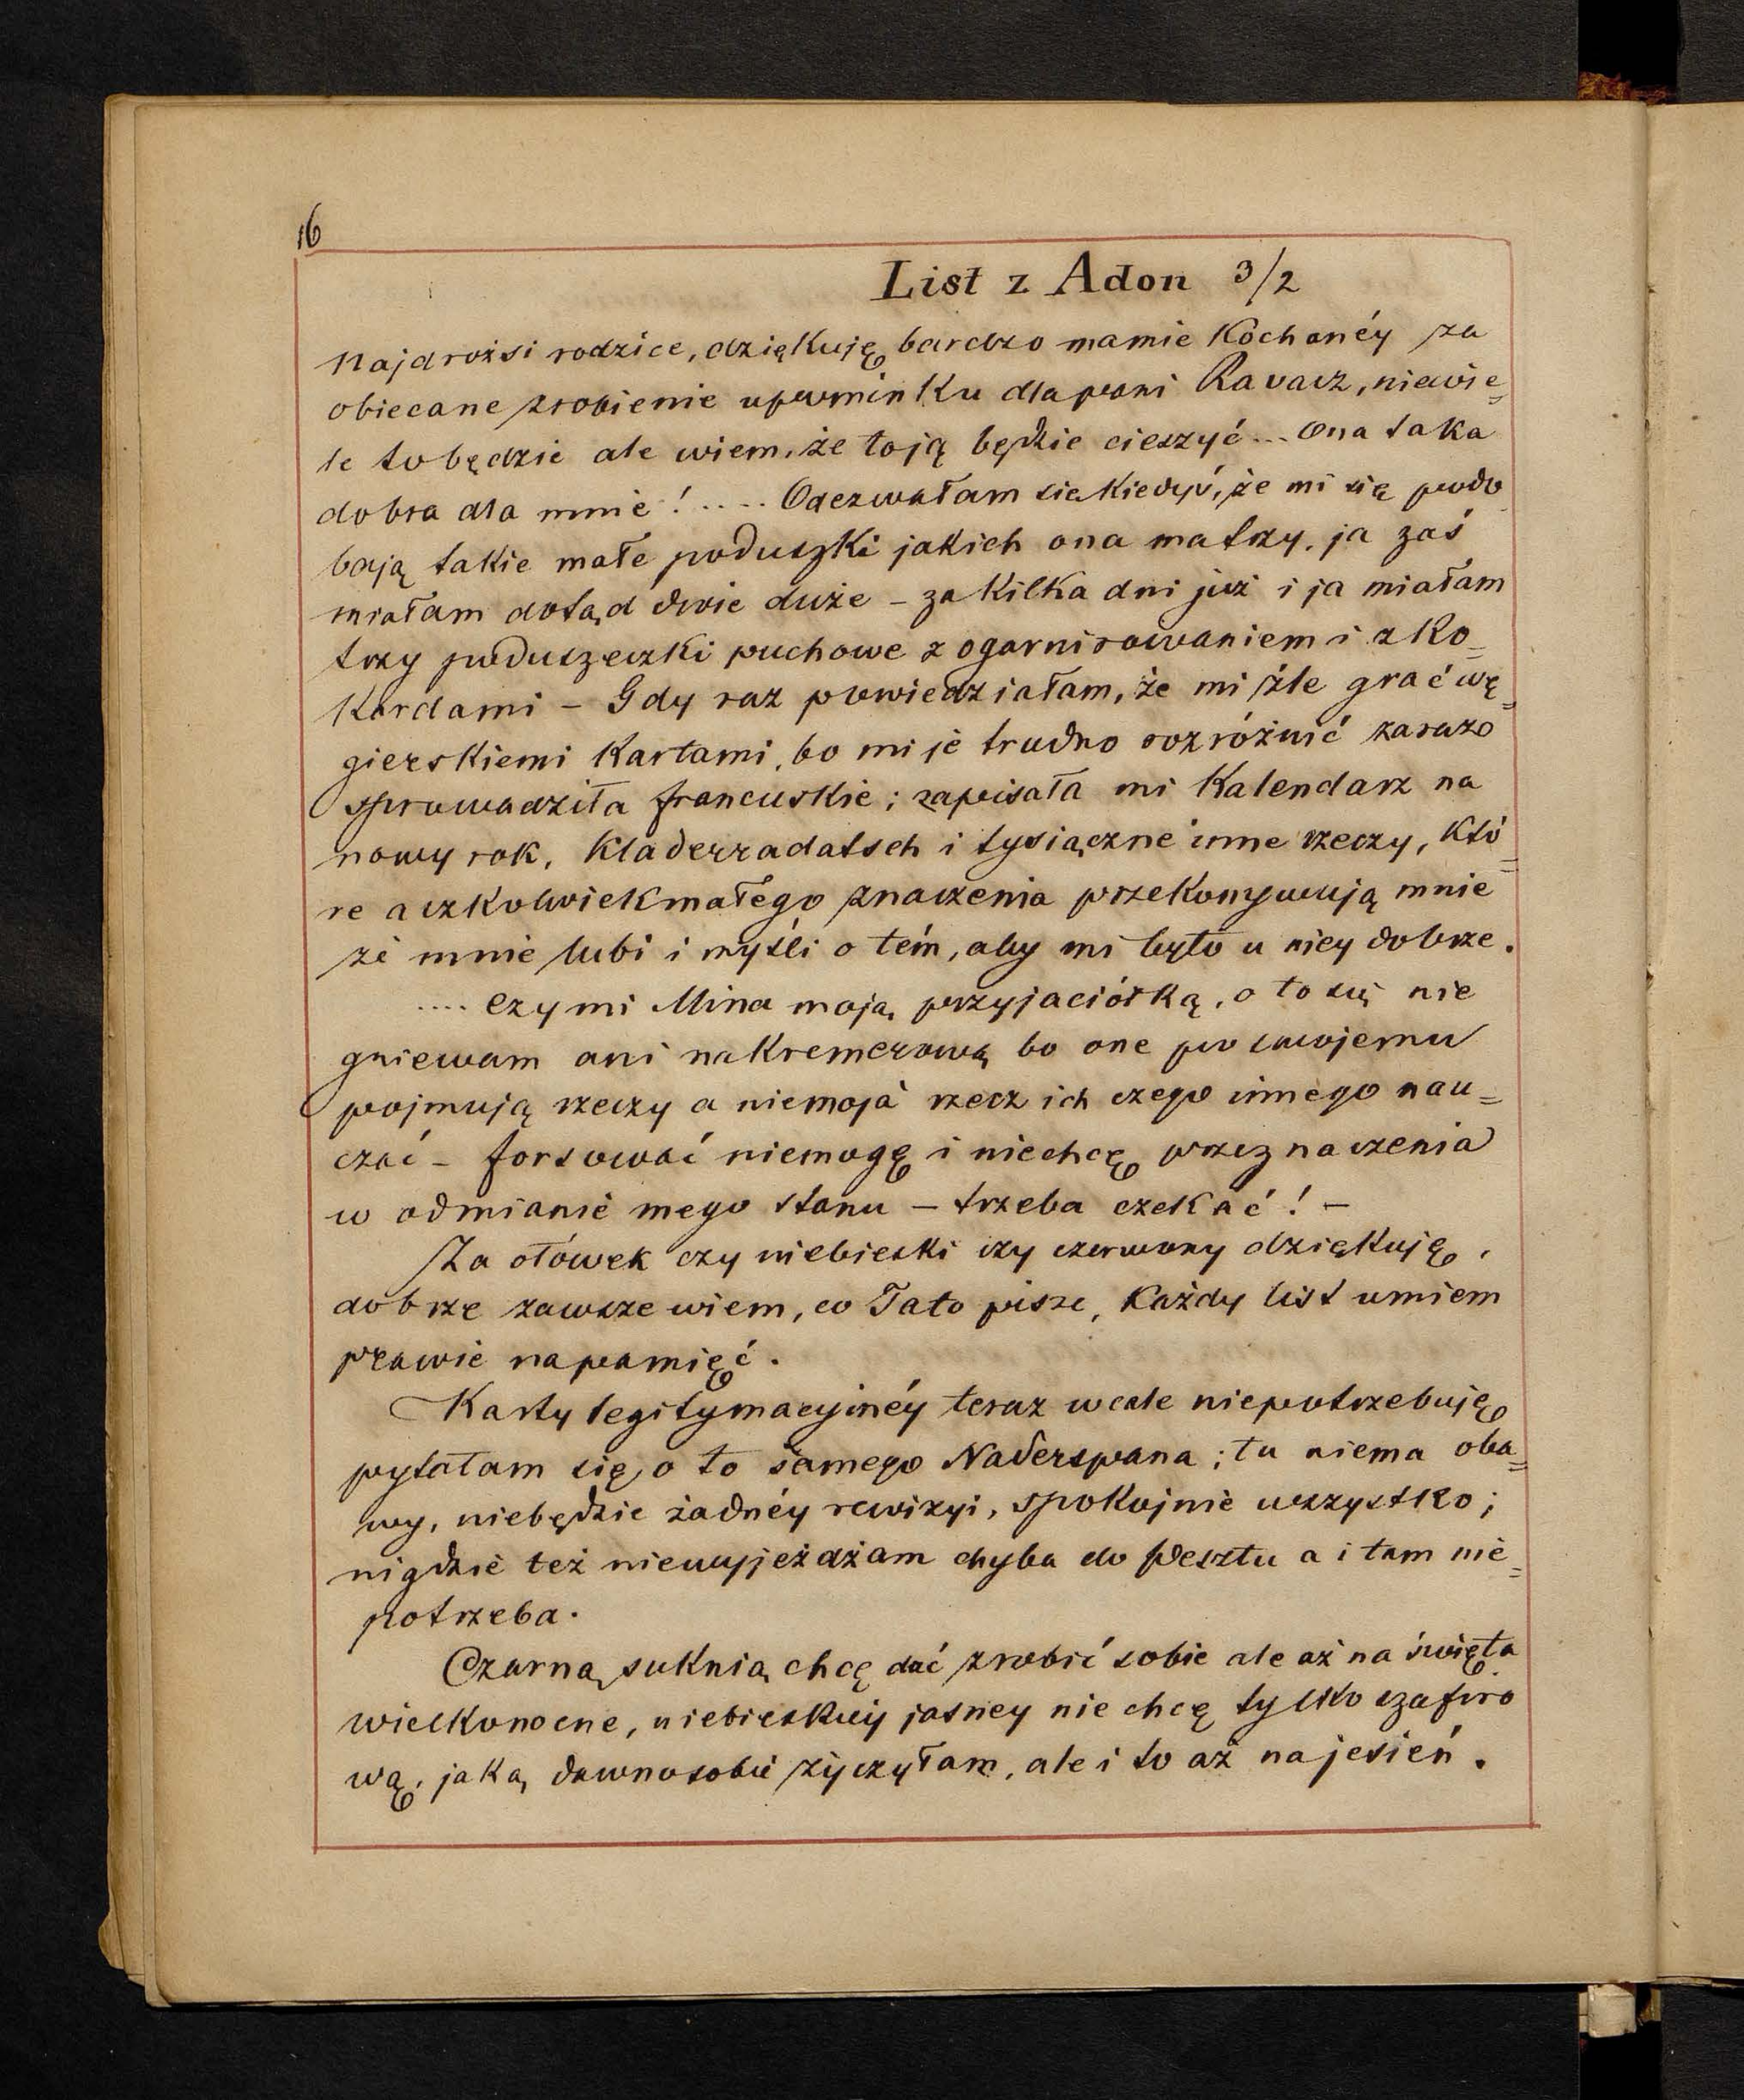 16
List z Adon 3/2
Najdrożsi rodzice, dziękuję bardzo mamie Kochanéy za
obiecane zrobienie upominku dla pani Ravasz, niewie=
le to będzie ale wiem, że to ją będzie cieszyć... Ona taka
dobra dla mnie! .... Odezwałam sie kiedyś, że mi się podo
bają takie małe poduszki jakich ona ma trzy, ja zaś
miałam dotąd dwie duże – za kilka dni już i ja miałam
trzy poduszeczki puchowe z ogarnirowaniem i z ko=
kardami – Gdy raz powiedziałam, że mi źle grać wę=
gierskiemi kartami, bo mi je trudno rozróżnić zarazo
sprowadziła francuskie; zapisała mi Kalendarz na
nowy rok, Kladerradatsch i tysiączne inne rzeczy, któ=
re aczkolwiek małego znaczenia przekonywują mnie
że mnie lubi i myśli o tém, aby mi było u niey dobrze.
.... Czy mi Mina moją przyjaciółką, o to się nie
gniewam ani na Kremerową bo one po swojemu
pojmują rzeczy a nie moja rzecz ich czego innego nau=
czać – forsować niemogę i niechcę przeznaczenia
w odmianie mego stanu – trzeba czekać! –
Za ołówek czy niebieski czy czerwony dziękuję,
dobrze zawsze wiem, co Tato pisze, Każdy list umiem
prawie na pamięć.
Karty legitymacyjnéy teraz wcale niepotrzebuję
pytałam się o to samego Naderspana; tu niema oba=
wy, niebędzie żadnéy rewizyi, spokojnie wszystko;
nigdzie też niewyjeżdżam chyba do Pesztu a i tam nie=
potrzeba.
Czarną suknią chcę dać zrobić sobie ale aż na święta
wielkonocne, niebieskiéy jasney nie chcę tylko szafiro
wą, jaką dawno sobie życzyłam, ale i to aż na jesień.